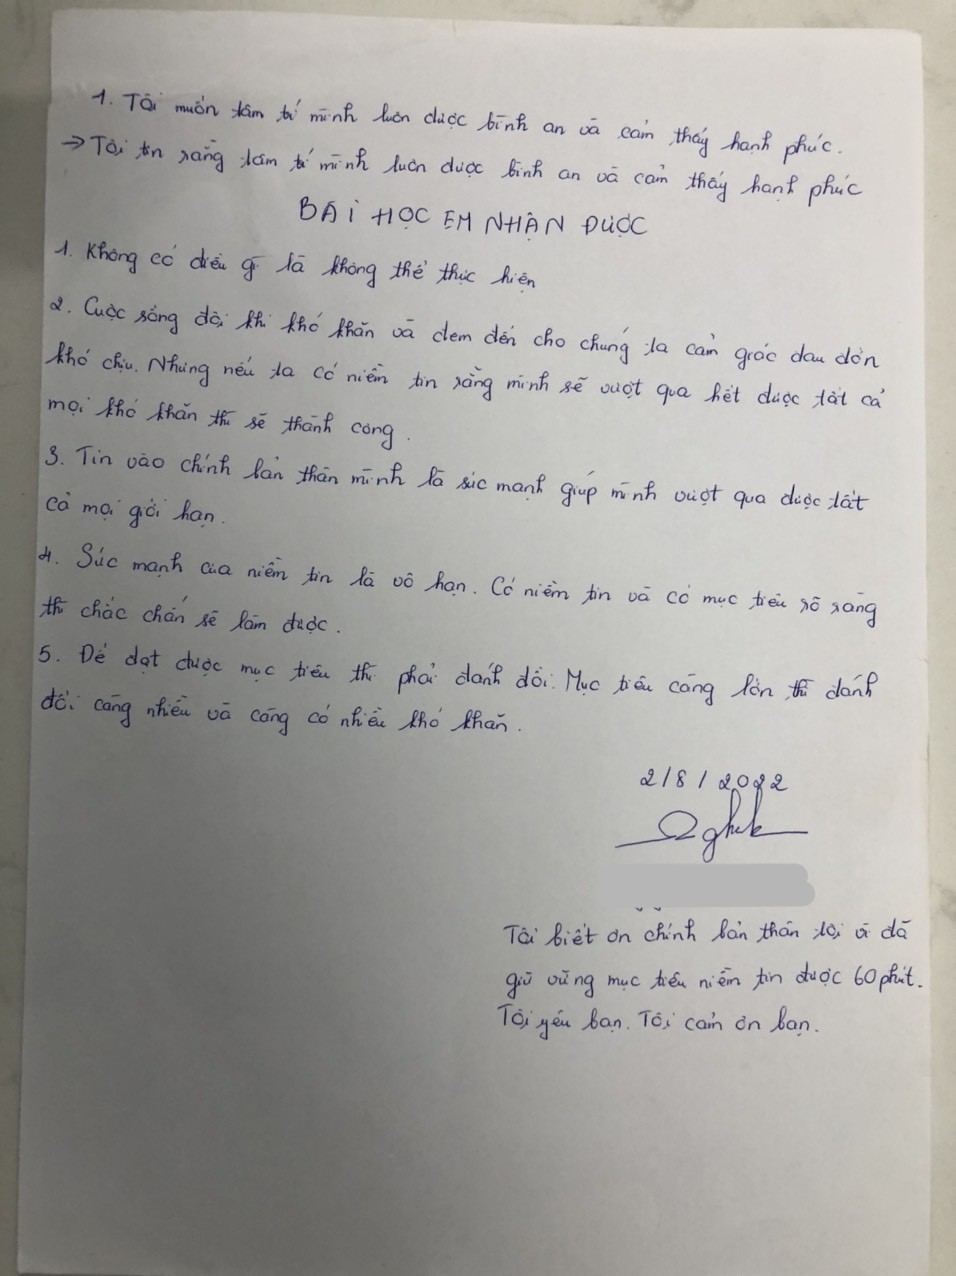 1. Tôi muốn tâm trí mình luôn được bình an và cảm thấy hạnh phúc.
→ Tôi tin rằng tâm trí mình luôn được bình an và cảm thấy hạnh phúc
BÀI HỌC EM NHẬN ĐƯỢC
1. Không có điều gì là không thể thực hiện
2. Cuộc sống đôi khi khó khăn và đem đến cho chúng ta cảm giác đau đớn
khó chịu. Nhưng nếu ta có niềm tin rằng mình sẽ vượt qua hết được tất cả
mọi khó khăn thì sẽ thành công.
3. Tin vào chính bản thân mình là sức mạnh giúp mình vượt qua được tất
cả mọi giới hạn.
4. Sức mạnh của niềm tin là vô hạn. Có niềm tin và có mục tiêu rõ ràng
thì chắc chắn sẽ làm được.
5. Để đạt được mục tiêu thì phải đánh đổi. Mục tiêu càng lớn thì đánh
đổi càng nhiều và càng có nhiều khó khăn.
2/8/2022
Tôi biết ơn chính bản thân tôi vì đã
giữ vững mục tiêu niềm tin được 60 phút.
Tôi yêu bạn. Tôi cảm ơn bạn.